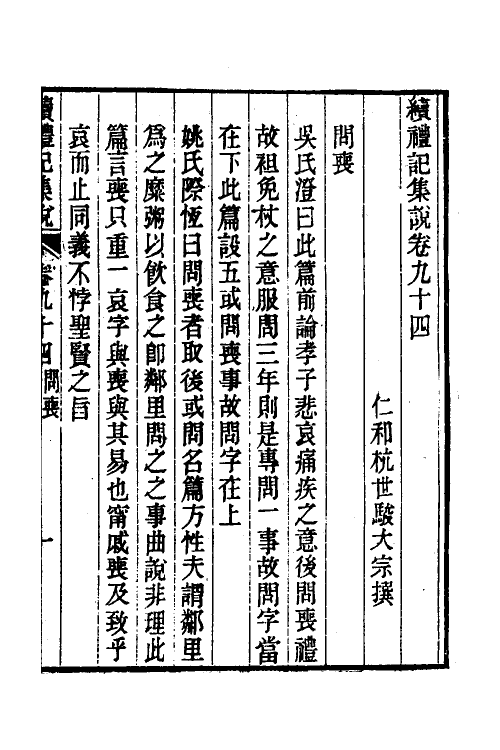 續禮記集說卷九十四
仁和杭世駿大宗撰
問喪
吳氏澄曰此篇前論孝子悲哀痛疾之意後問喪禮
故袒免杖之意服問三年則是專問一事故問字當
在下此篇設五或問喪事故問字在上
姚氏際恆曰問喪者取後或問名篇方性夫謂鄰里
為之糜粥以飲食之即鄰里問之之事曲說非理此
篇言喪只重一哀字與喪與其易也甯戚喪及致乎
哀而止同義不悖聖賢之旨
續禮記集說 卷九十四 問喪 一